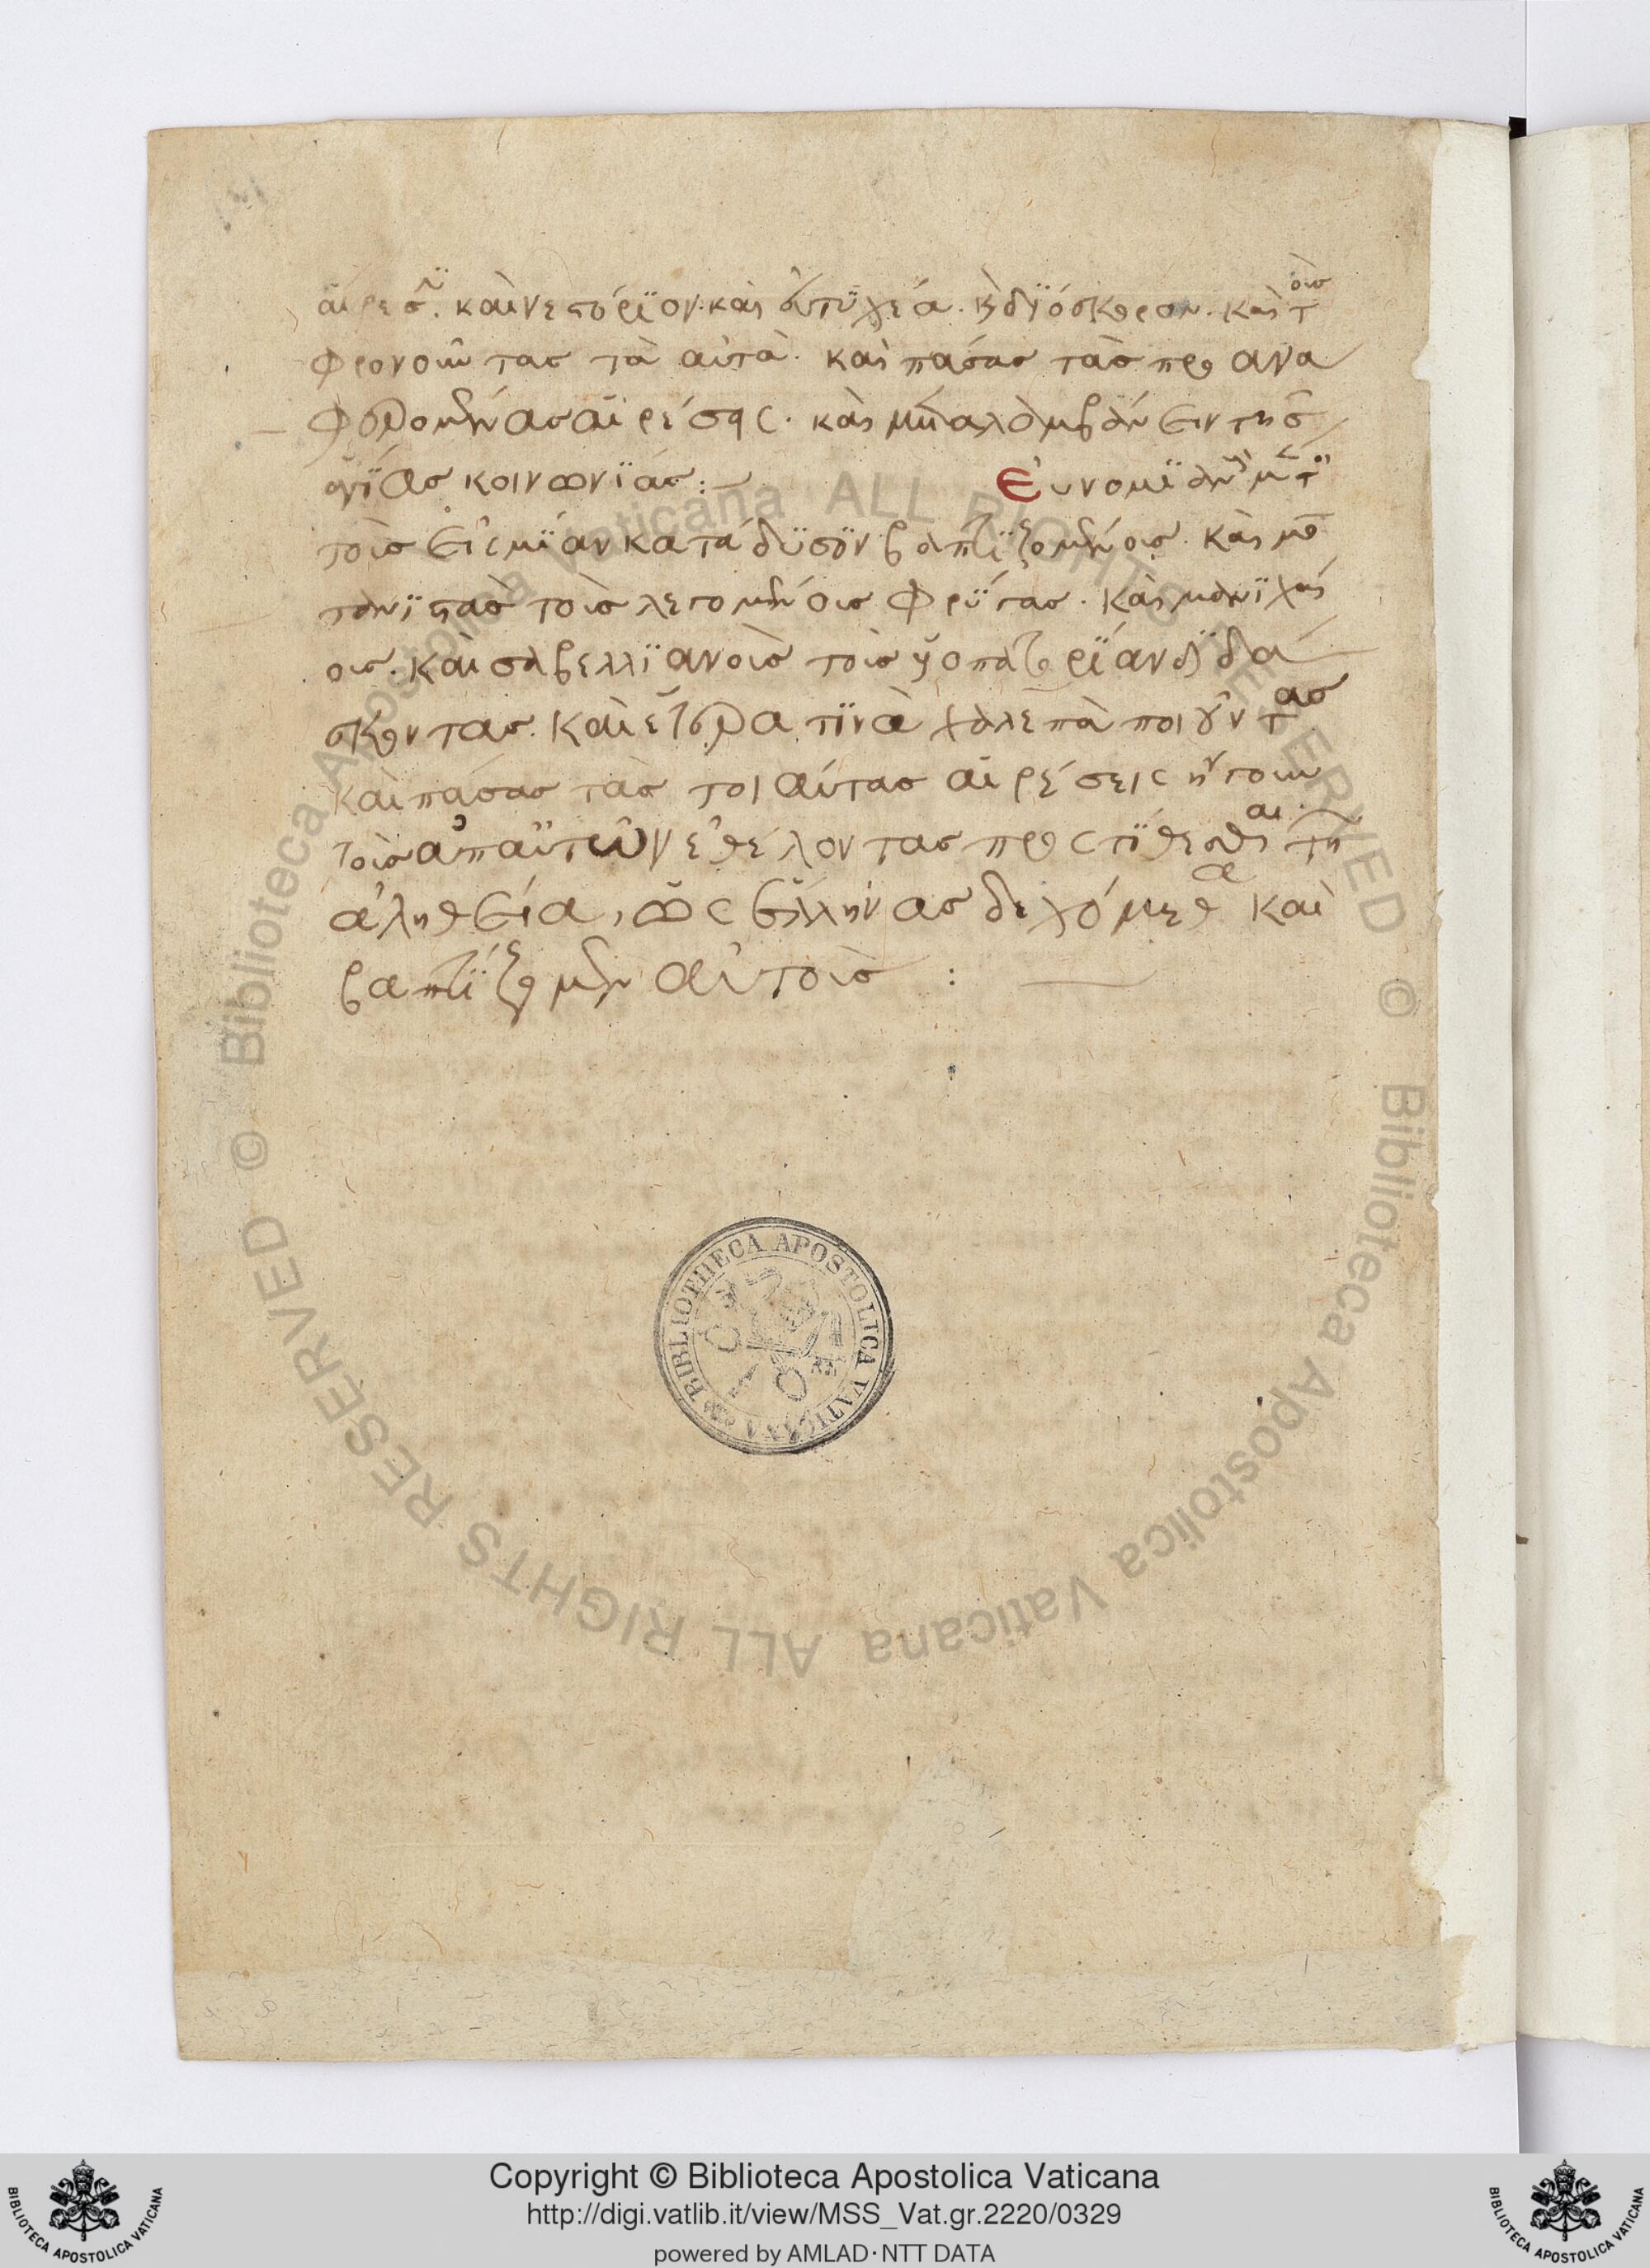 αἵρεσϊν. καὶ νεστόριον. καὶ εὐτϋχέα. κ δϊόσκορον. καὶ τοὶσ
φρονοιῦντασ τὰ αὐτὰ. καὶ πάσασ τὰσ προ ανα
φερομένασ αἱρέσεις. καὶ μεταλαμβάνειν τῆσ
ἁγΐασ κοινωνΐασ :
τοὶσ εἰς μΐαν κατάδϋσϊν βαπτϊζομένοισ. καὶ μο
τανϊστὰσ τοὶσ λεγομένοισ φρΰγασ. καὶ μανϊχαί
οισ. καὶ σαβελλϊανοὶσ τοὶσ ὑοπατορΐαν διδά
σκοντασ. καὶ ἕτερα τϊνὰ χαλεπὰ ποιοῦντασ
καὶ πάσασ τὰσ τοιαύτασ αἱρέσεις ἤγουν
τοὶσ ἀπ αὐτῶν ἐθέλοντασ προςτΐθεσθαι τῆ
ἀληθεία, ὡς ἕλληνασ δεχόμεθα καὶ
βαπτΐζομεν αὐτοὶσ :
BIBLIOTHECA APOSTOLICA VATICANA
© Biblioteca Apostolica Vaticana ALL RIGHTS RESERVED
© Biblioteca Apostolica Vaticana ALL RIGHTS RESERVED
Copyright © Biblioteca Apostolica Vaticana
http://digi.vatlib.it/view/MSS_Vat.gr.2220/0329
powered by AMLAD·NTT DATA
BIBLIOTECA APOSTOLICA VATICANA
BIBLIOTECA APOSTOLICA VATICANA